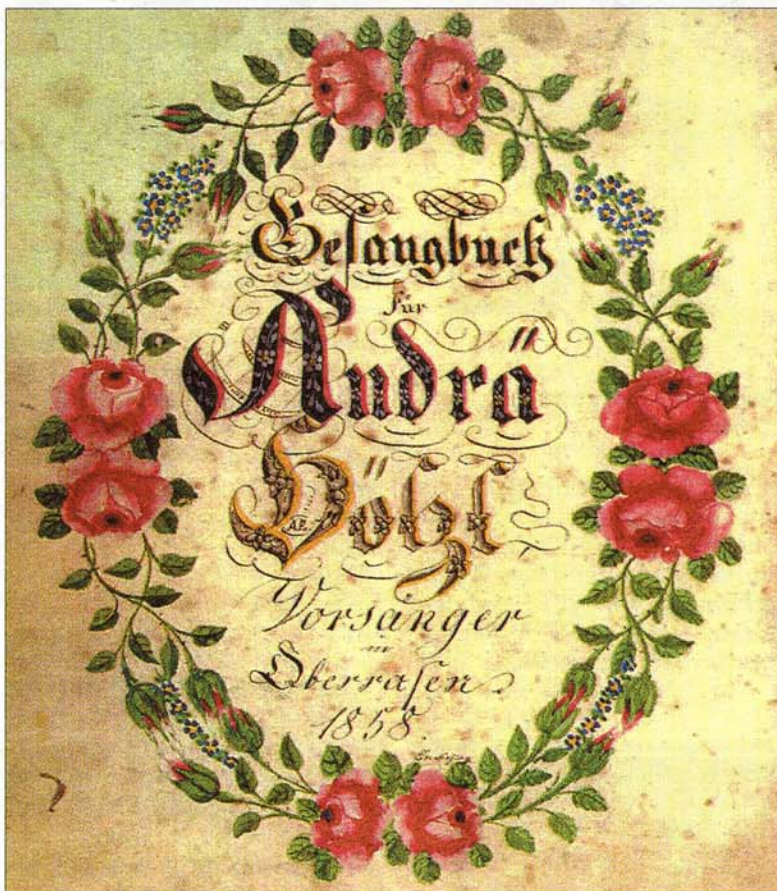 Gesangbuch
für
Andrä
Hölzl
Vorsanger
in
Oberrasen
1858.